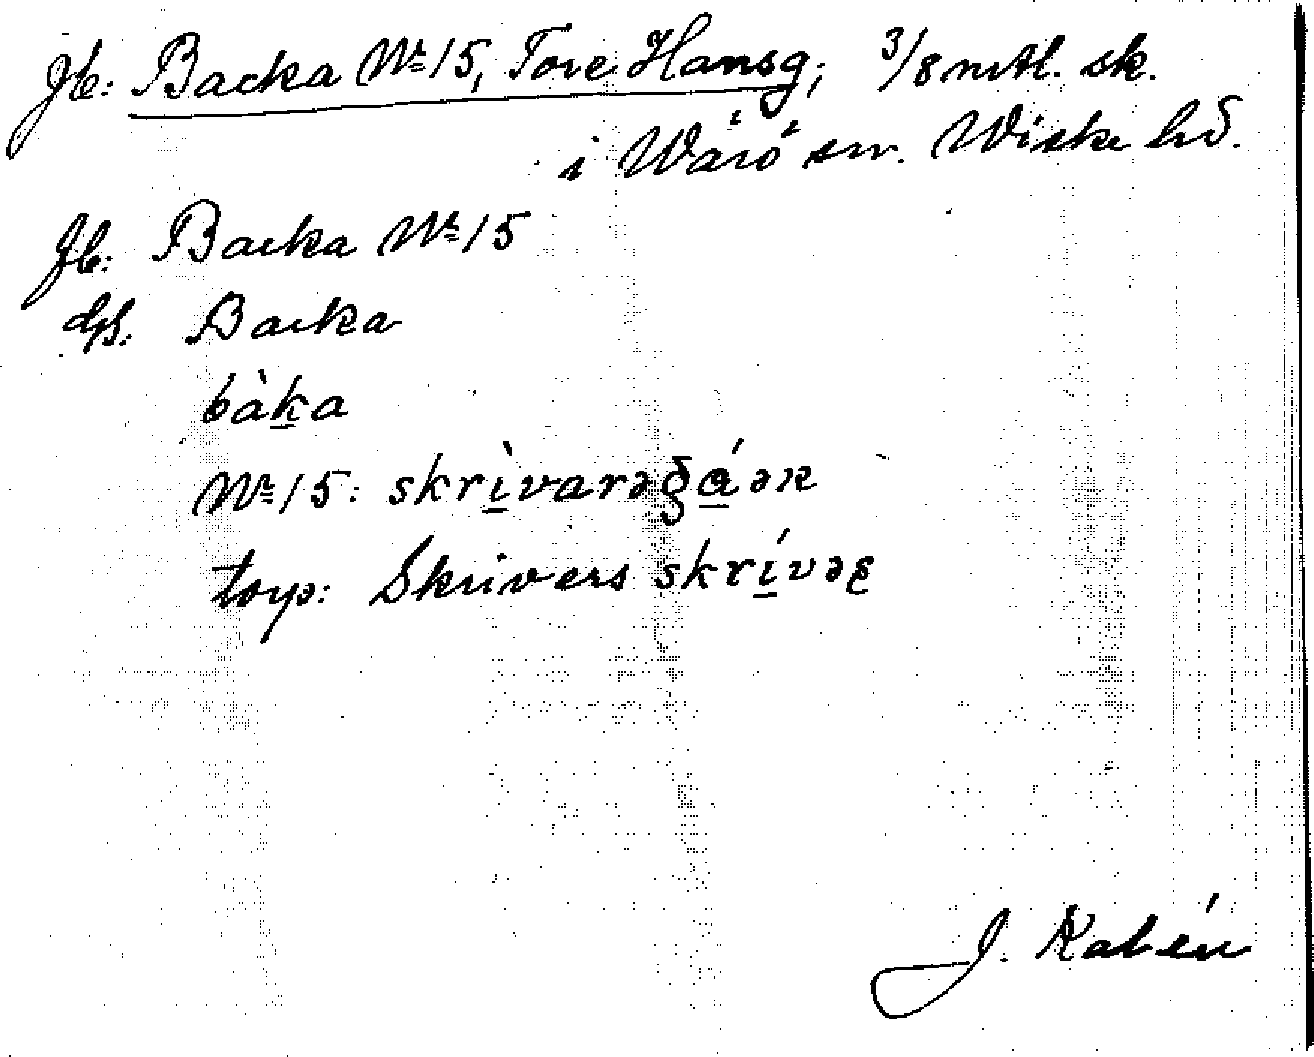 Jb: Backa Nr 15, Tore Hansg; 3/8 mtl. sk.
i Wärö sn. Wiske hd.
Jb: Backa Nr 15
ds. Backa
bàka
Nr 15: skrìvarəgáək
torp: Skrivers skrívəʂ
J. Kalén